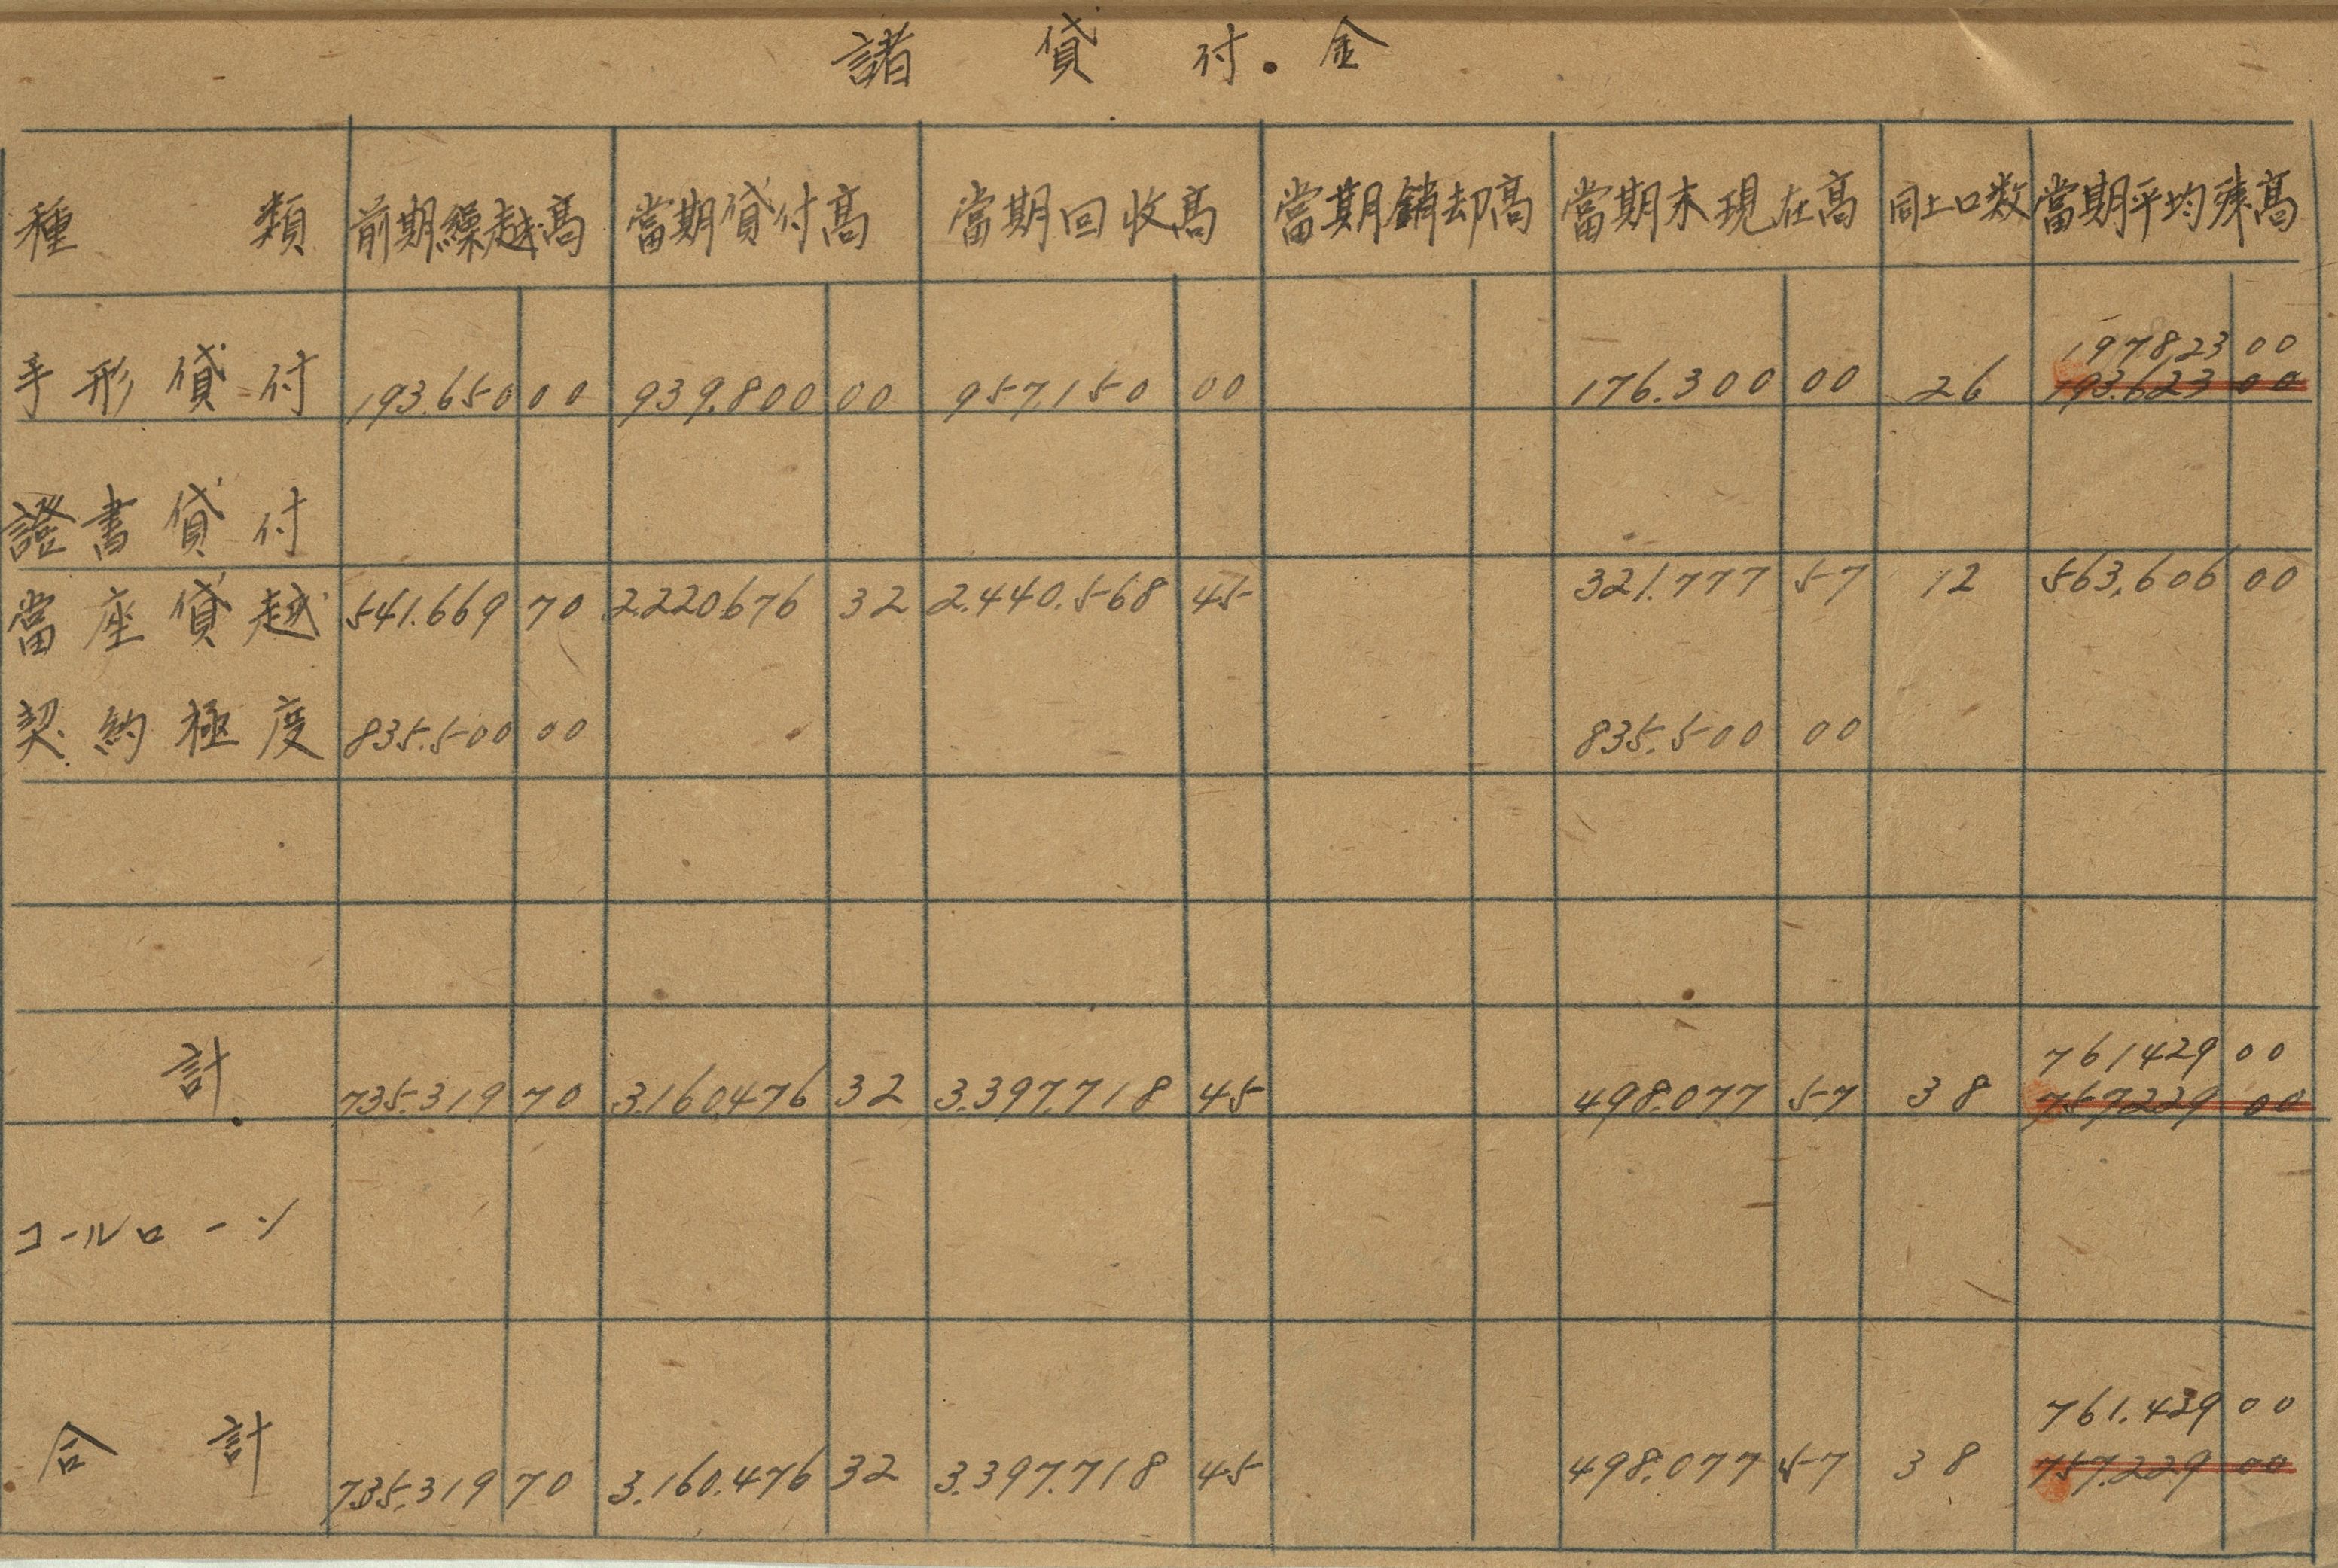 諸貸付金
種類 前期繰越高 當期貸付高 當期回收高 當期銷却高 當期末現在高 同上口数 當期平均殘高
197823 00
手形貸付 193.650 00 939.800 00 957.150 00 176.300 00 26 193.623 00
證書貸付
當座貸越 541.669 70 2.220676 32 2.440.568 45 321.777 57 12 563,606 00
契約極度 835.500 00 835.500 00
761429 00
計 735.319 70 3.160476 32 3.397.718 45 498.077 57 38 757229 00
コールローン
761.429 00
合計 735.319 70 3.160.476 32 3.397.718 45 498.077 57 38 757.229 00